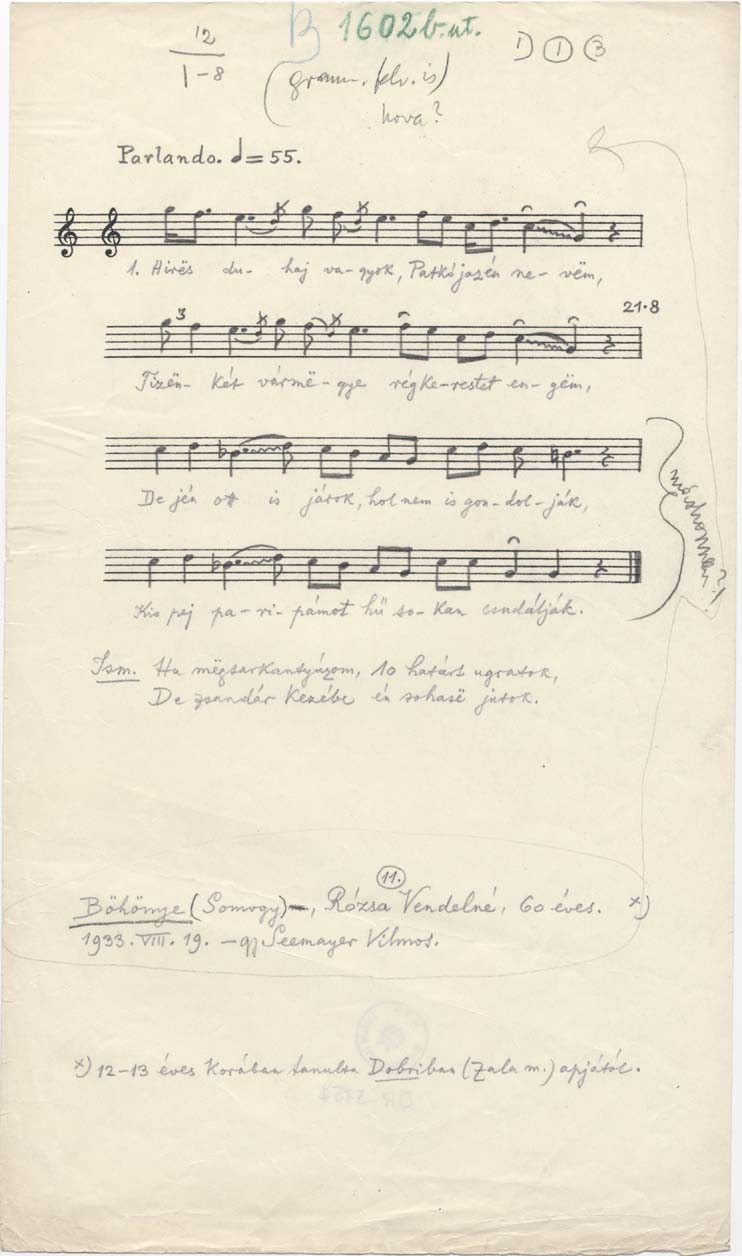 12
1-8
B 1602 b. ut.
1) ① ③
(gramm. felv. is)
hova?
Parlando. = 55.
1. Hirës du- haj va-gyok, Patkójazén ne- vëm,
3
21.8
Tizën- két vármë- gye rég ke-restet en- gëm,
De jén ott is járok, hol nem is gon-dol-ják,
Kis pej pa- ri- pámot hű so- kan csudálják.
Ism. Ha mëgsarkantyúzom, 10 határt ugratok,
De zsandár kezébe én sohasë jutok.
11.
Böhönye (Somogy), Rózsa Vendelné, 60 éves. x)
1933. VIII. 19. - gy Seemayer Vilmos.
x) 12-13 éves korában tanulta Dobriban (Zala m.) apjától.